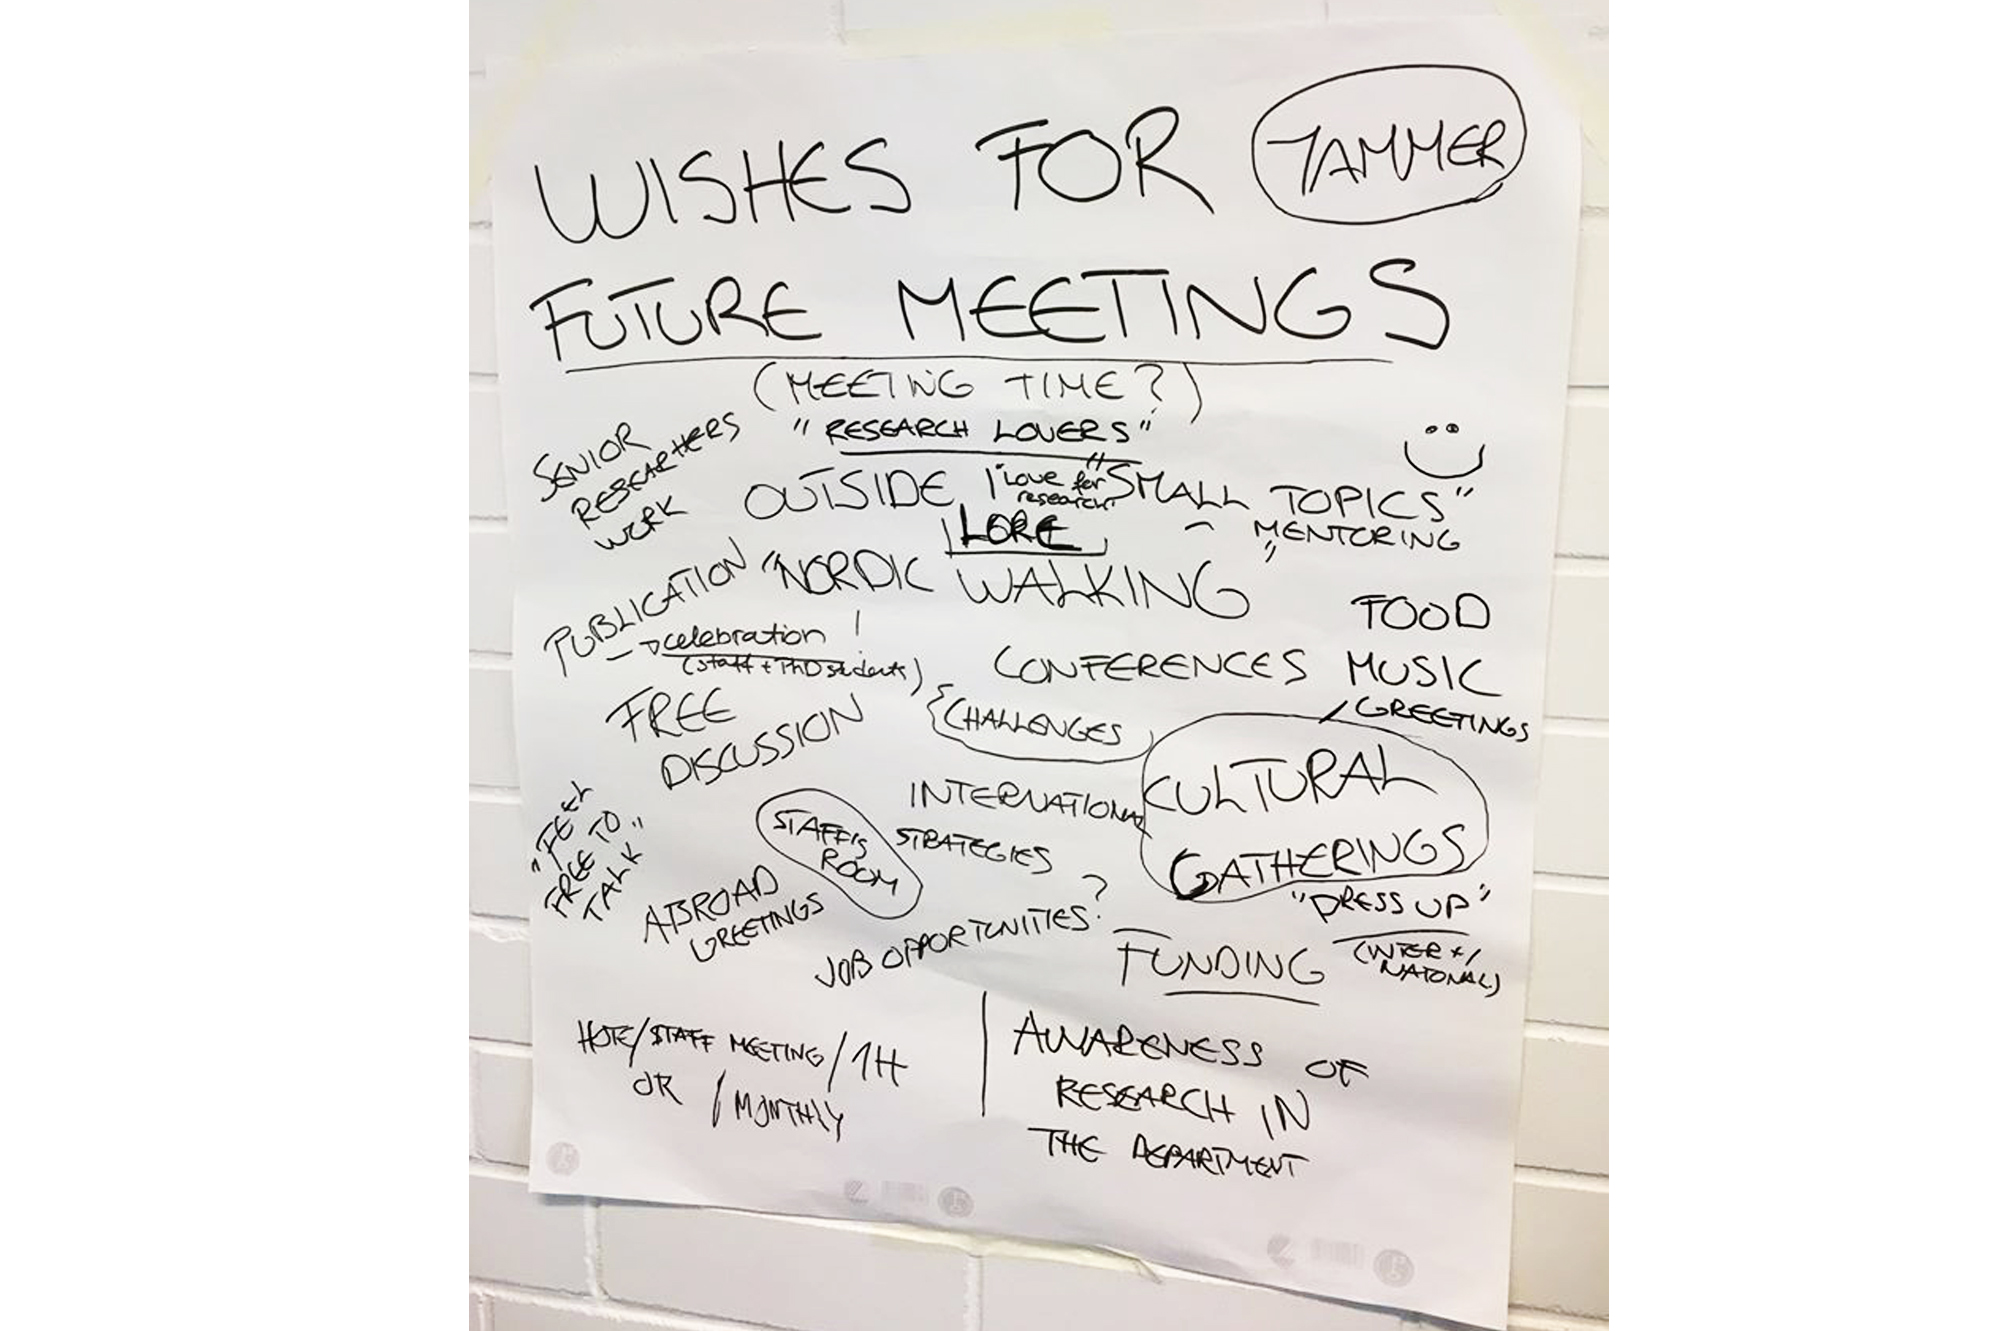 WISHES FOR
YAMMER
FUTURE MEETINGS
(MEETING TIME?)
"RESEARCH LOVERS"
SENIOR
RESEARHERS
WORK
OUTSIDE
"Love for
research
LORE
"SMALL TOPICS"
MENTORING
"NORDIC WALKING"
PUBLICATION
celebration!
(staff + PhD students)
FOOD
CONFERENCES
MUSIC
/GREETINGS
FREE
DISCUSSION
CHALLENGES
CULTURAL
GATHERINGS
"DRESS UP"
(INTER +/
NATONAL)
INTERNATIONAL
STRATEGIES
STAFFIS
ROOM
FREE TO
TALK"
ABROAD
GREETINGS
JOB OPPORTUNITIES?
FUNDING
/STAFF MEETING/1H
OR /MONTHLY
AWARENESS OF
RESEARCH IN
THE DEPARTMENT